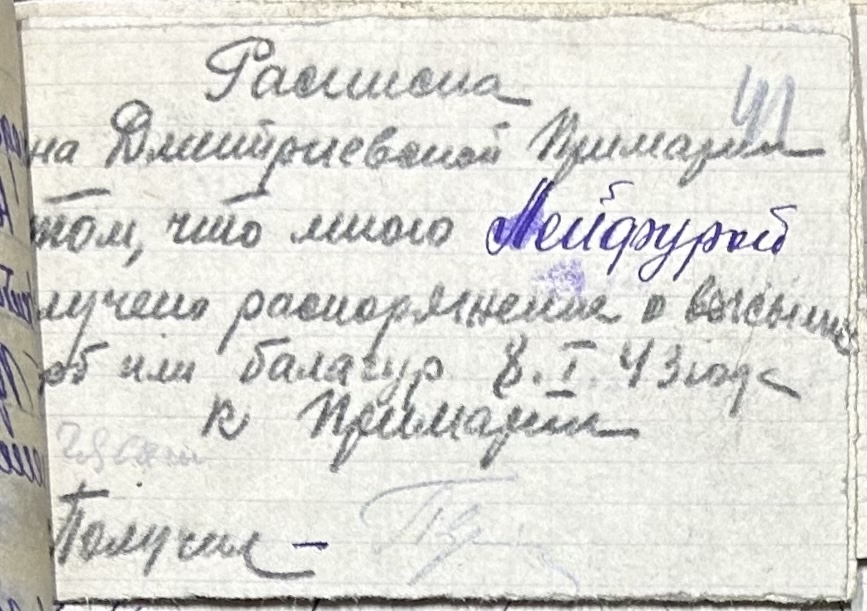 Расписка
41
на Дмитриевской Примарии
том, что мною Лейфурой
лучено распоряжение о высылке
или балагур 8.I.43 года
к Примарии
Получил –